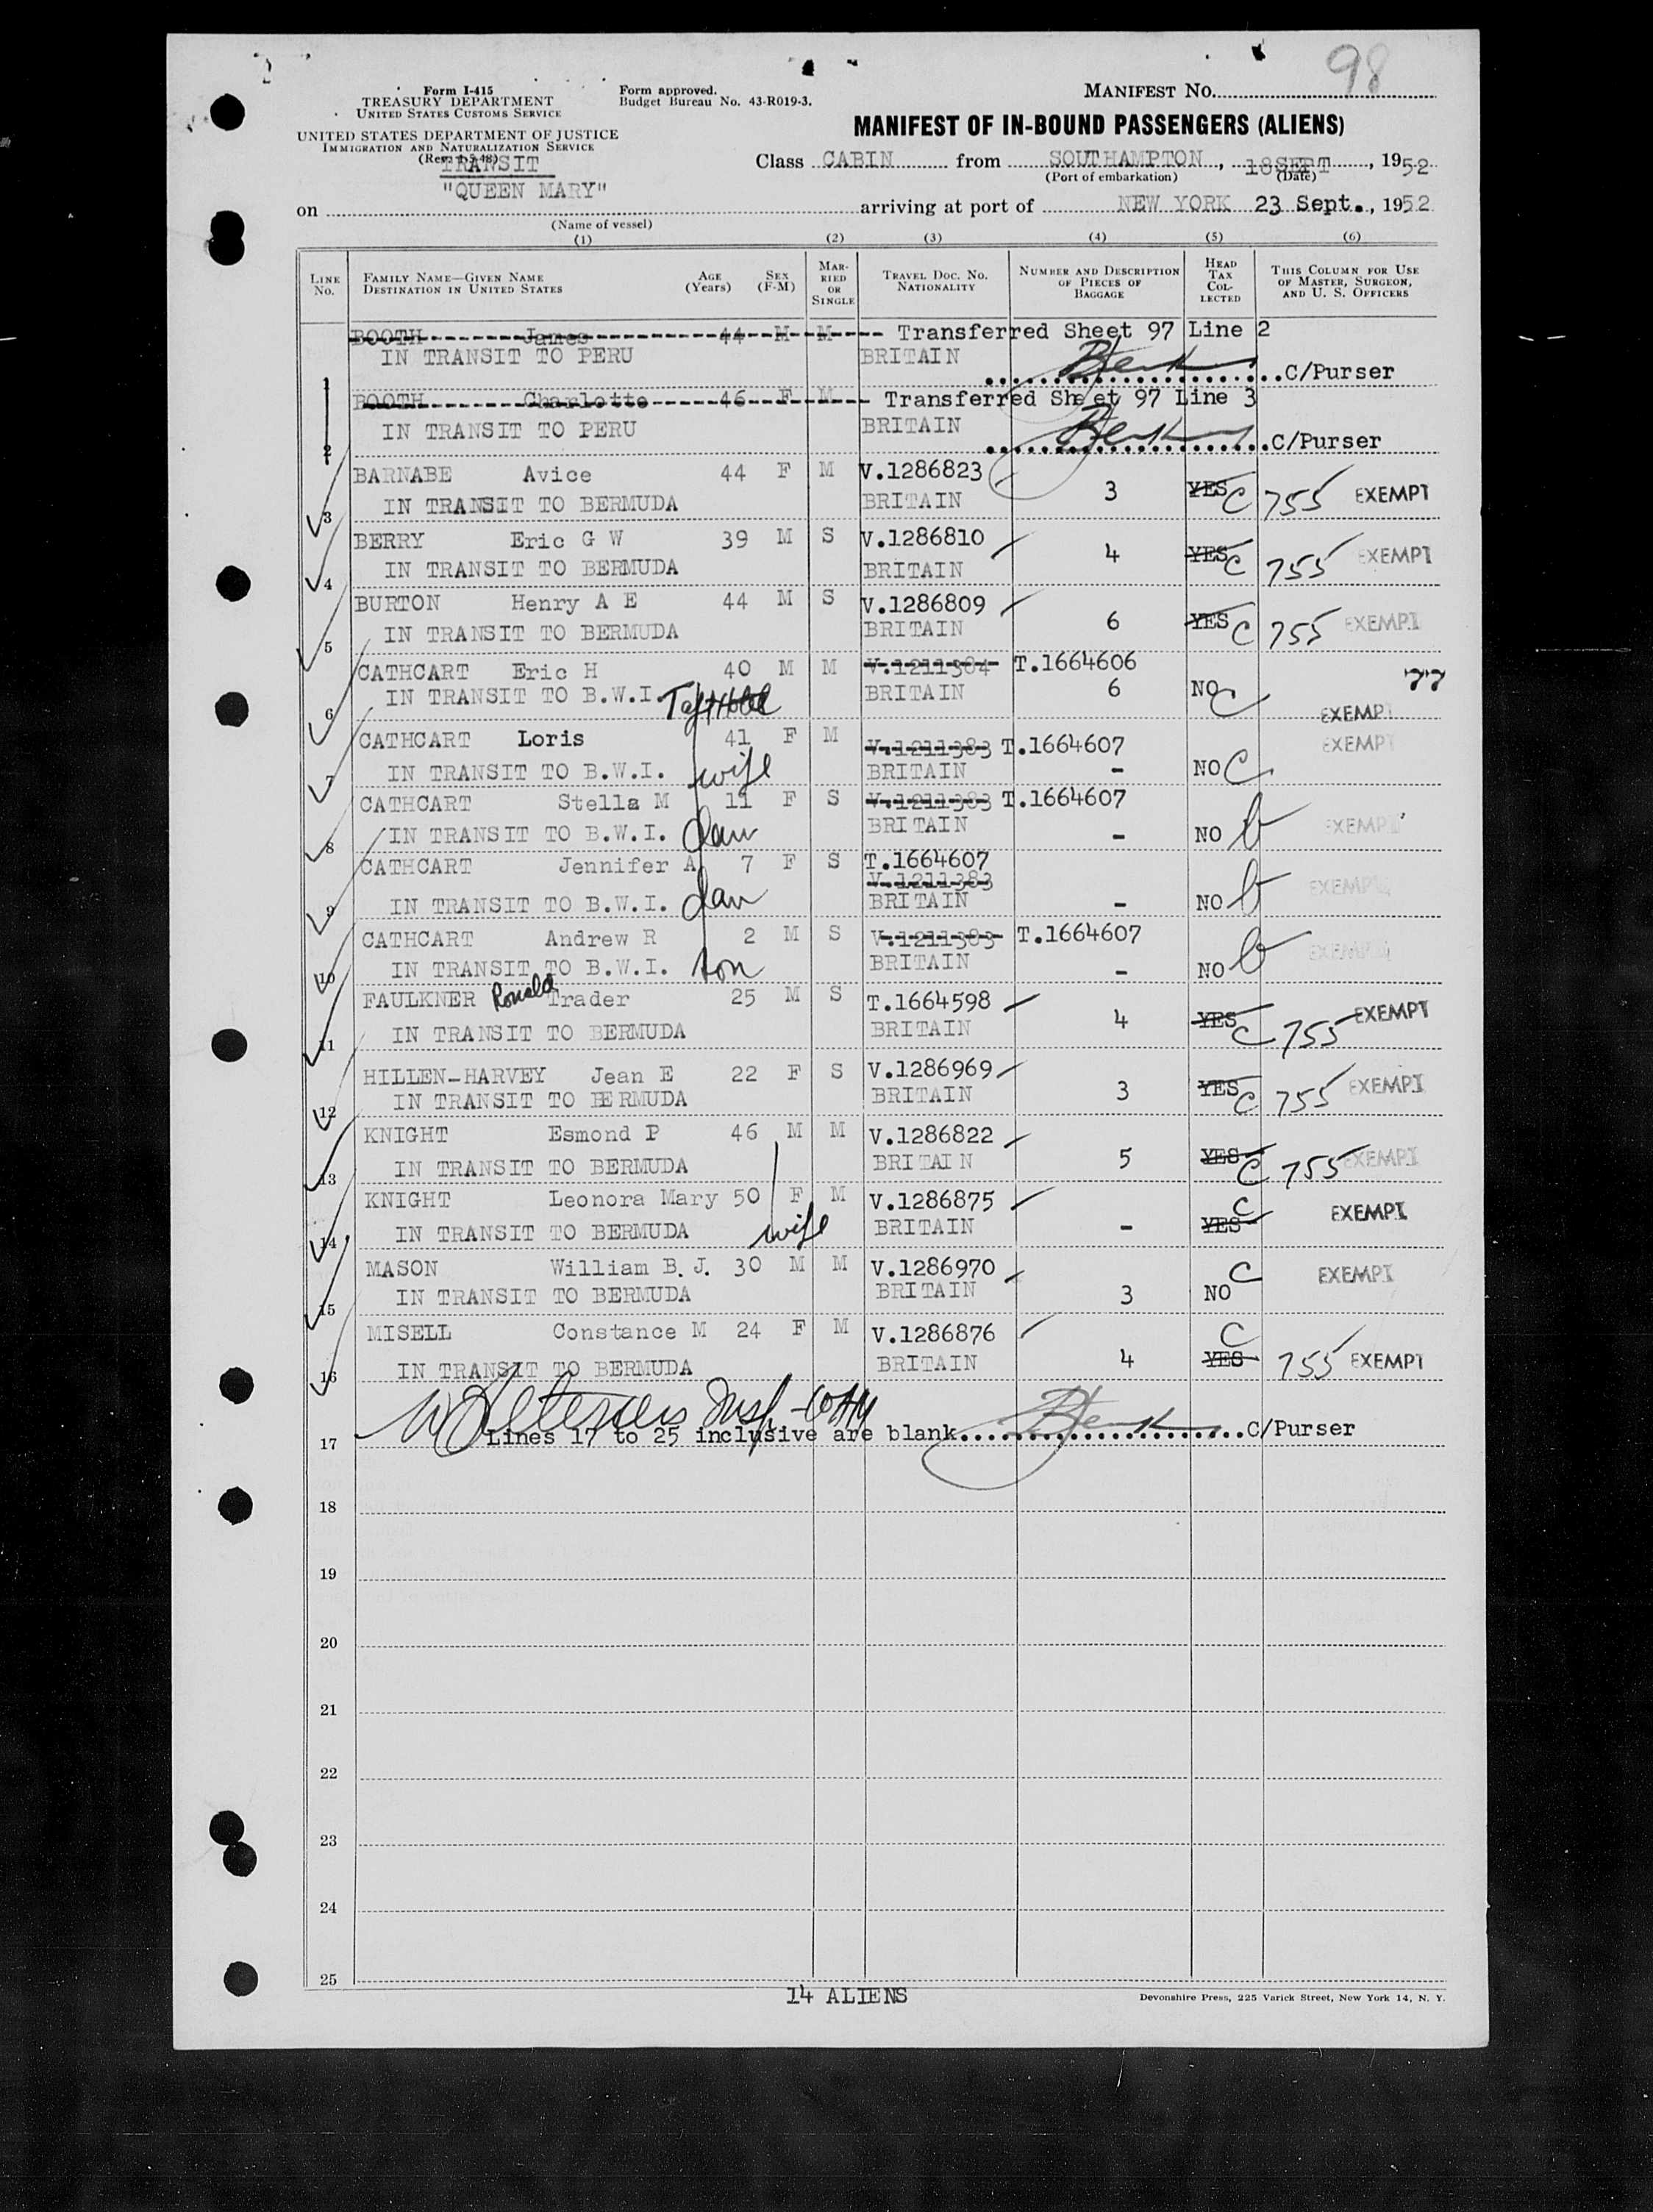 98
Form I-415
TREASURY DEPARTMENT
UNITED STATES CUSTOMS SERVICE
Form approved.
Budget Bureau No. 43-R019-3.
MANIFEST NO.
UNITED STATES DEPARTMENT OF JUSTICE
IMMIGRATION AND NATURALIZATION SERVICE
(Rev. 1-5-48)
TRANSIT
MANIFEST OF IN-BOUND PASSENGERS (ALIENS)
Class CABIN from SOUTHAMPTON, 18 SEPT, 1952
(Port of embarkation) (Date)
on "QUEEN MARY" arriving at port of NEW YORK 23 Sept., 1952
(Name of vessel)
(1) (2) (3) (4) (5) (6)
LINE No. FAMILY NAME—GIVEN NAME DESTINATION IN UNITED STATES AGE (Years) SEX (F-M) MARRIED OR SINGLE TRAVEL DOC. NO. NATIONALITY NUMBER AND DESCRIPTION OF PIECES OF BAGGAGE HEAD TAX COLLECTED THIS COLUMN FOR USE OF MASTER, SURGEON, AND U. S. OFFICERS
BOOTH James 44 M M Transferred Sheet 97 Line 2
1 IN TRANSIT TO PERU BRITAIN C/Purser
BOOTH Charlotte 46 F M Transferred Sheet 97 Line 3
2 IN TRANSIT TO PERU BRITAIN C/Purser
BARNABE Avice 44 F M V.1286823
3 IN TRANSIT TO BERMUDA BRITAIN 3 YES C 755 EXEMPT
BERRY Eric G W 39 M S V.1286810
4 IN TRANSIT TO BERMUDA BRITAIN 4 YES C 755 EXEMPT
BURTON Henry A E 44 M S V.1286809
5 IN TRANSIT TO BERMUDA BRITAIN 6 YES C 755 EXEMPT
CATHCART Eric H 40 M M V.1211384 T.1664606
6 IN TRANSIT TO B.W.I. Taft Hotel BRITAIN 6 NO C EXEMPT 77
CATHCART Loris 41 F M V.1211383 T.1664607 EXEMPT
7 IN TRANSIT TO B.W.I. wife BRITAIN - NO C
CATHCART Stella M 11 F S V.1211383 T.1664607
8 IN TRANSIT TO B.W.I. dau BRITAIN - NO b EXEMPT
CATHCART Jennifer A 7 F S T.1664607
V.1211383
9 IN TRANSIT TO B.W.I. dau BRITAIN - NO b EXEMPT
CATHCART Andrew R 2 M S V.1211383 T.1664607
10 IN TRANSIT TO B.W.I. son BRITAIN - NO b EXEMPT
FAULKNER Ronald Trader 25 M S T.1664598
11 IN TRANSIT TO BERMUDA BRITAIN 4 YES C 755 EXEMPT
HILLEN-HARVEY Jean E 22 F S V.1286969
12 IN TRANSIT TO BERMUDA BRITAIN 3 YES C 755 EXEMPT
KNIGHT Esmond P 46 M M V.1286822
13 IN TRANSIT TO BERMUDA BRITAIN 5 YES C 755 EXEMPT
KNIGHT Leonora Mary 50 F M V.1286875
14 IN TRANSIT TO BERMUDA wife BRITAIN - YES C EXEMPT
MASON William B. J. 30 M M V.1286970
15 IN TRANSIT TO BERMUDA BRITAIN 3 NO C EXEMPT
MISELL Constance M 24 F M V.1286876
16 IN TRANSIT TO BERMUDA BRITAIN 4 YES C 755 EXEMPT
17 Lines 17 to 25 inclusive are blank C/Purser
18
19
20
21
22
23
24
25
14 ALIENS
Devonshire Press, 225 Varick Street, New York 14, N. Y.